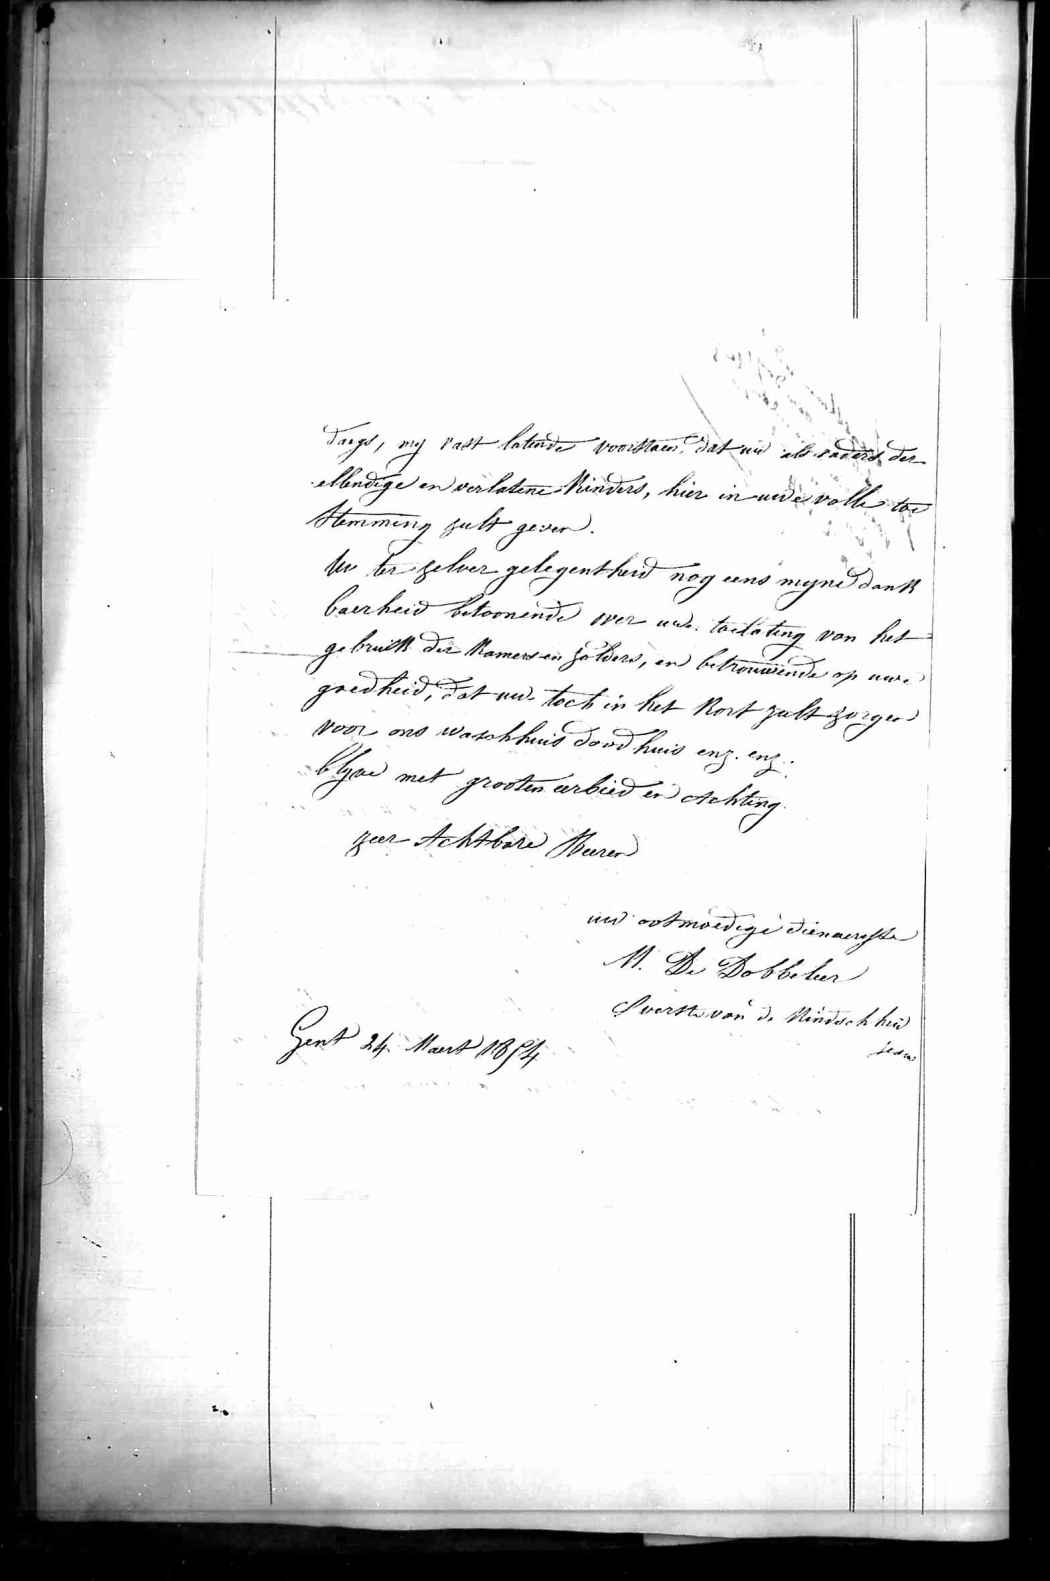 daegs, my vast latende voorstaen dat uw als vaders der
ellendige en verlatene Kinders, hier in uwe volle toe
stemming zult geven.
Uw ter zelver gelegentheid nog eens myne dank
baerheid betoonende over uwe toelating van het
gebruik der Kamers en zolders, en betrouwende op uwe
goedheid, dat uw toch in het Kort zult zorgen
voor ons waschhuis doodhuis enz. enz.
blyve met grooten eerbied en Achting.
zeer Achtbare Heeren
uw ootmoedige dienaeresse
M. De Dobbeleer
Overste van de Kindsch heid
Jesus
Gent 24 Maert 1854